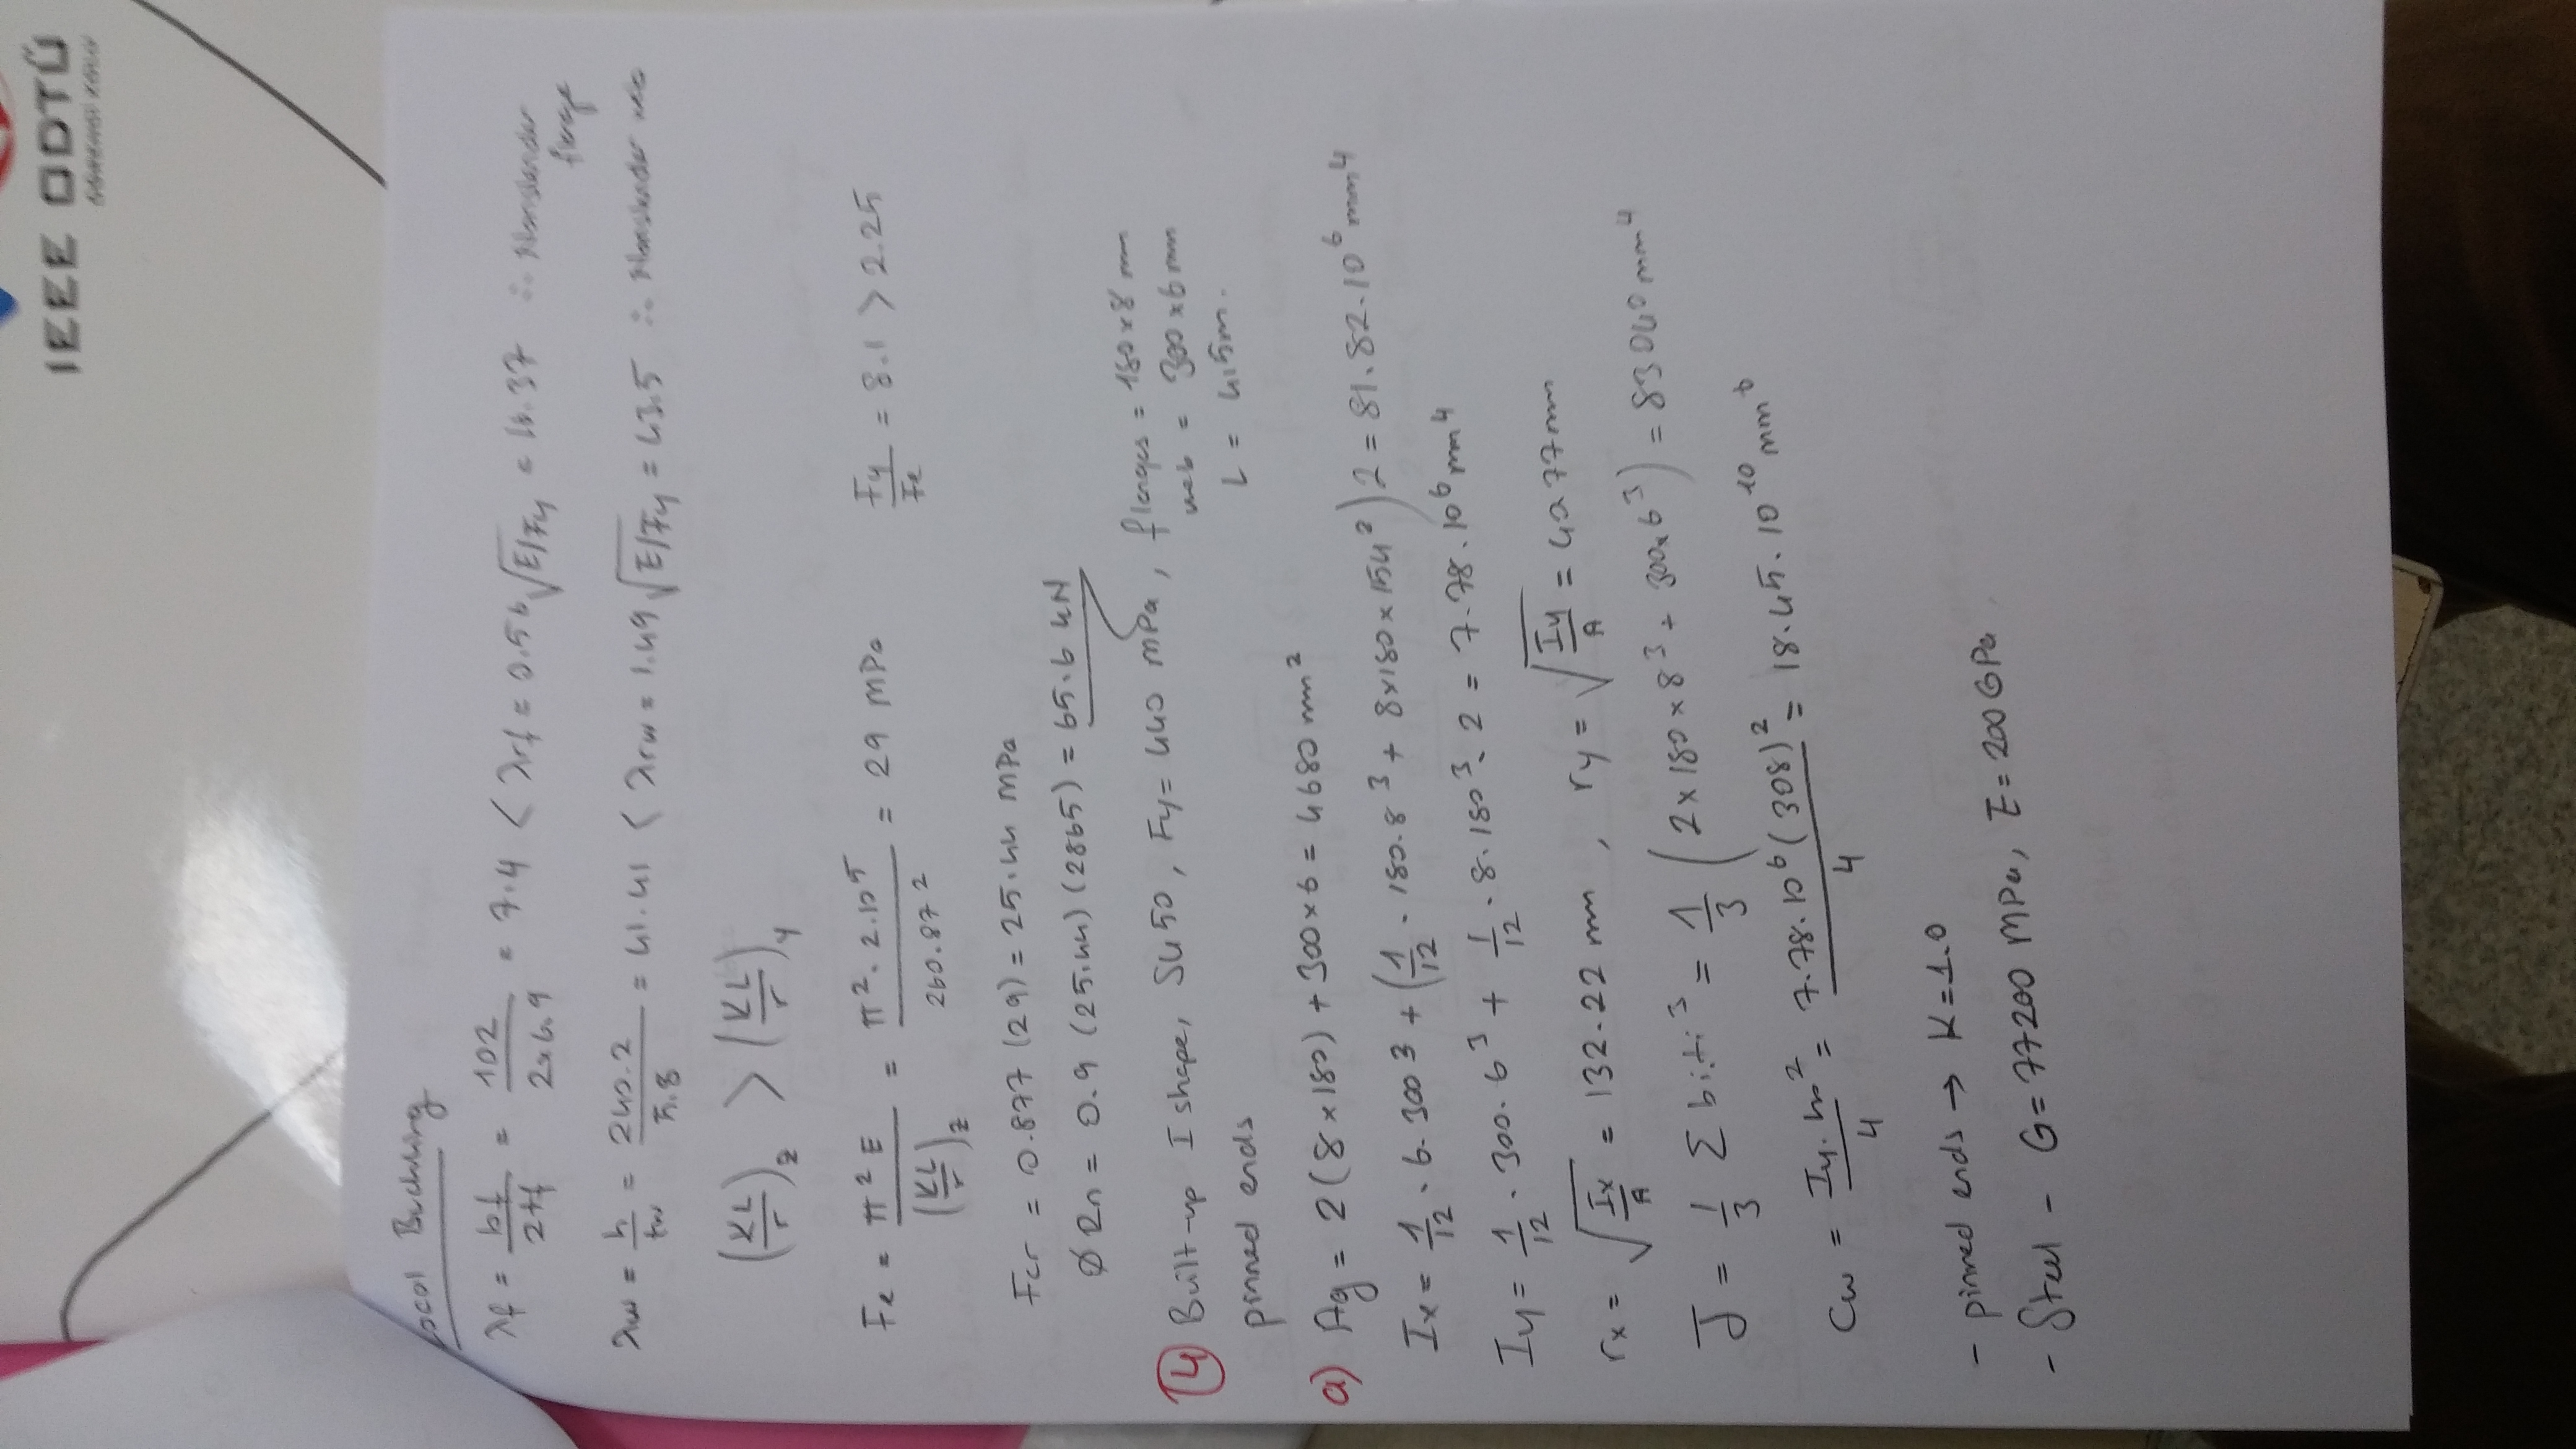 IEEE ODTÜ
Local Buckling
λf = bf / 2tf = 102 / 2x6.9 = 7.4 < λrf = 0.56 √E/Fy = 16.37 ∴ Nonslender flange
λw = h / tw = 240.2 / 5.8 = 41.41 < λrw = 1.49 √E/Fy = 43.5 ∴ Nonslender web
(KL/r)z > (KL/r)y
Fe = π² E / (KL/r)z = π². 2.10⁵ / 260.87² = 29 MPa Fy/Fe = 8.1 > 2.25
Fcr = 0.877 (29) = 25.44 MPa
Ø Rn = 0.9 (25.44) (2865) = 65.6 kN
4 Built-up I shape, S450, Fy = 440 MPa, flanges = 180x8 mm
web = 300x6 mm
pinned ends L = 4.5m.
a) Ag = 2(8x180) + 300x6 = 4680 mm²
Ix = 1/12 . 6. 300³ + (1/12 . 180.8³ + 8x180x154²)2 = 81.82.10⁶ mm⁴
Iy = 1/12 . 300. 6³ + 1/12 . 8. 180³. 2 = 7.78.10⁶ mm⁴
rx = √Ix/A = 132.22 mm , ry = √Iy/A = 40.77 mm
J = 1/3 Σ bi.ti³ = 1/3 (2x180x8³ + 300x6³) = 83040 mm⁴
Cw = Iy. ho² / 4 = 7.78.10⁶ (308)² / 4 = 18.45.10¹⁰ mm⁶
- pinned ends → K=1.0
- Steel - G= 77200 MPa, E= 200 GPa